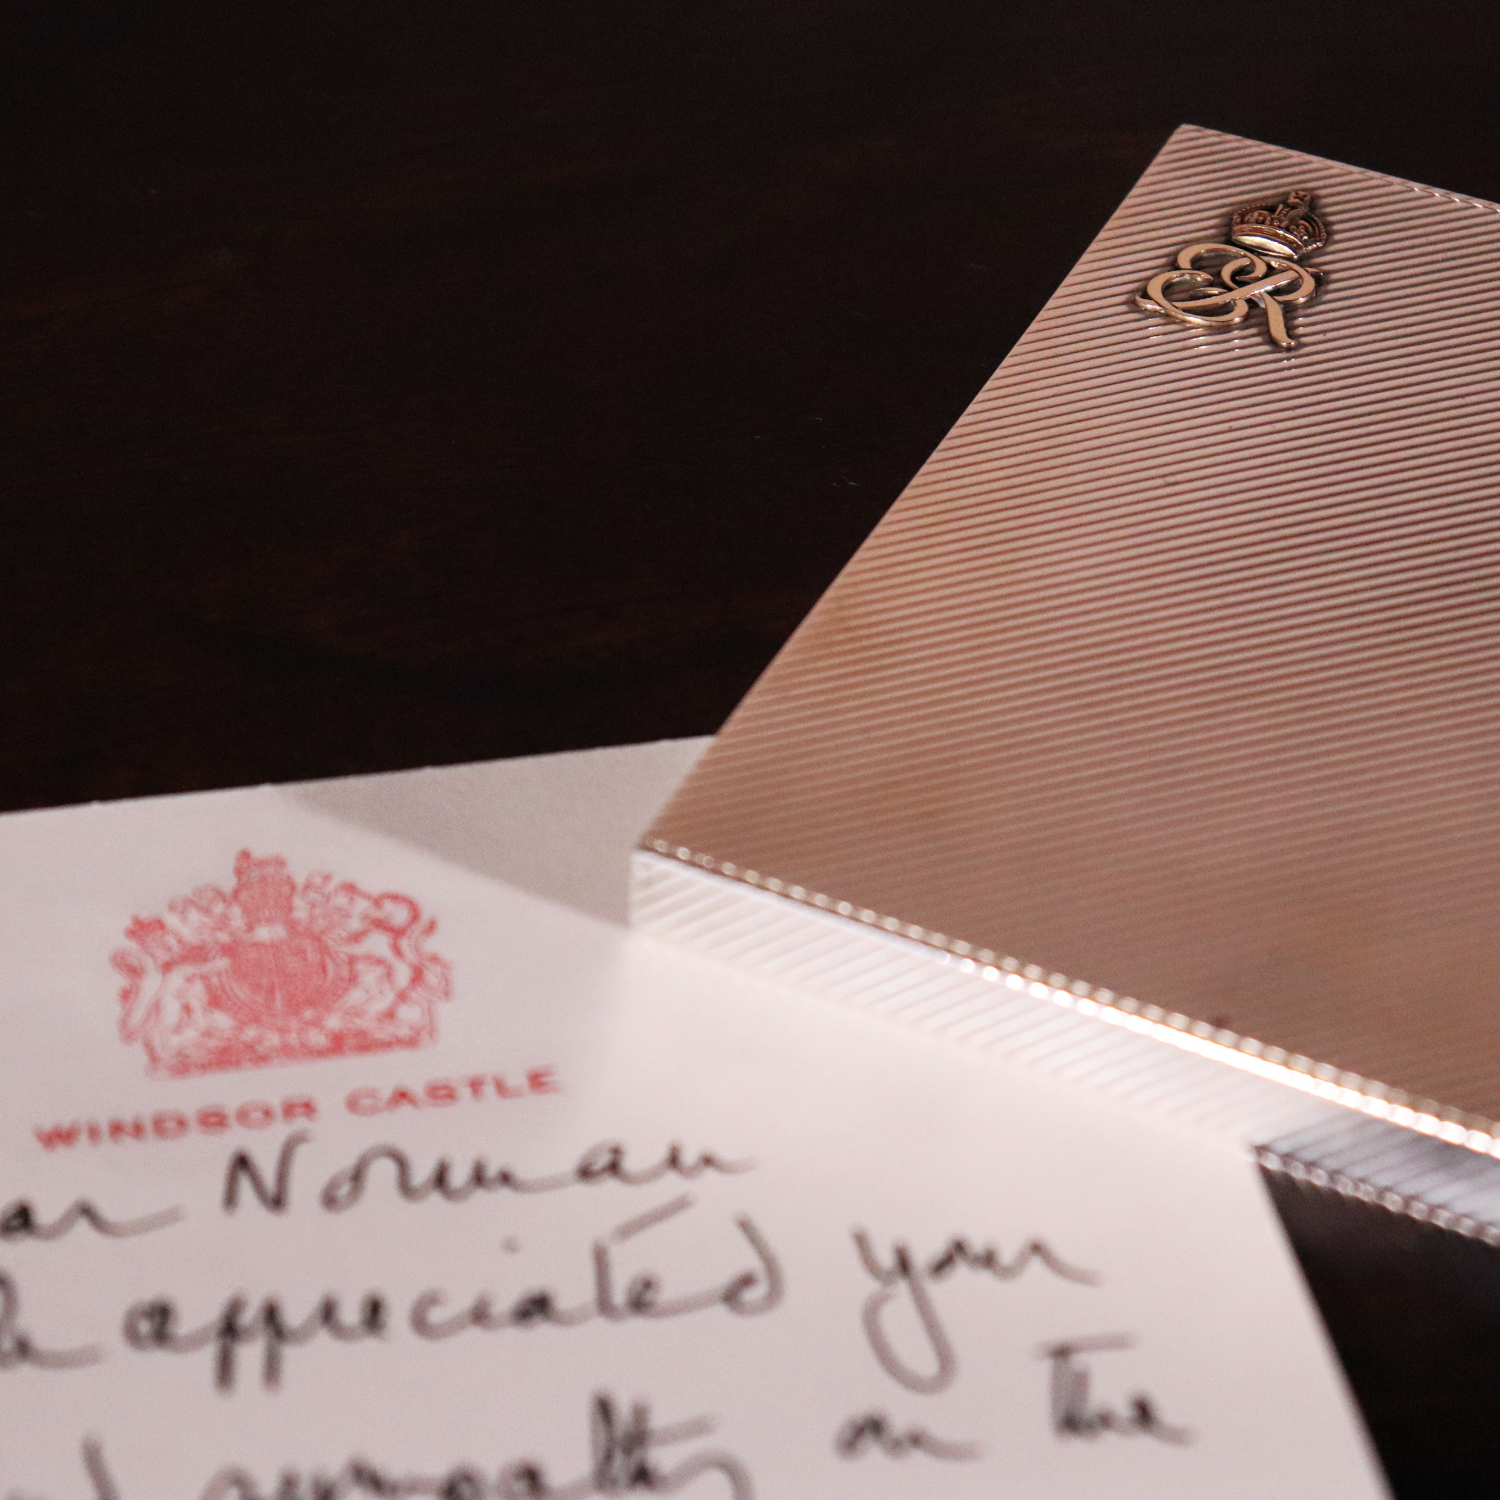 ER
WINDSOR CASTLE
ar Norman
appreciated your
sympathy on the